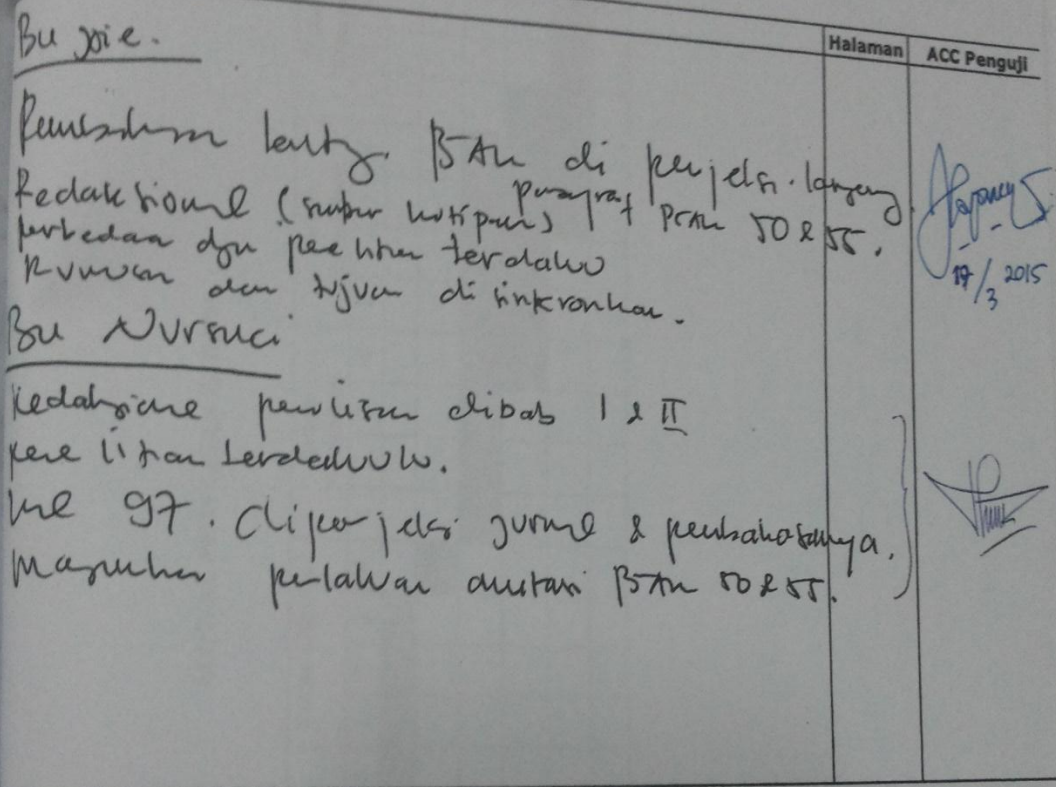 Bu Joie.
Halaman
ACC Penguji
di perjelas. langsung
Redaksional (sumber kutipan) paragraf PSAK 50 & 55.
perbedaan dgn penelitian terdahulu
Rumusan dan tujuan disinkronkan.
17/3 2015
Bu Nursuci
Redaksional penulisan dibab I & II
Penelitian terdahulu.
Hal 97. diperjelas jurnal & pembahasannya.
Masukkan perlakuan akuntansi PSAK 50 & 55.